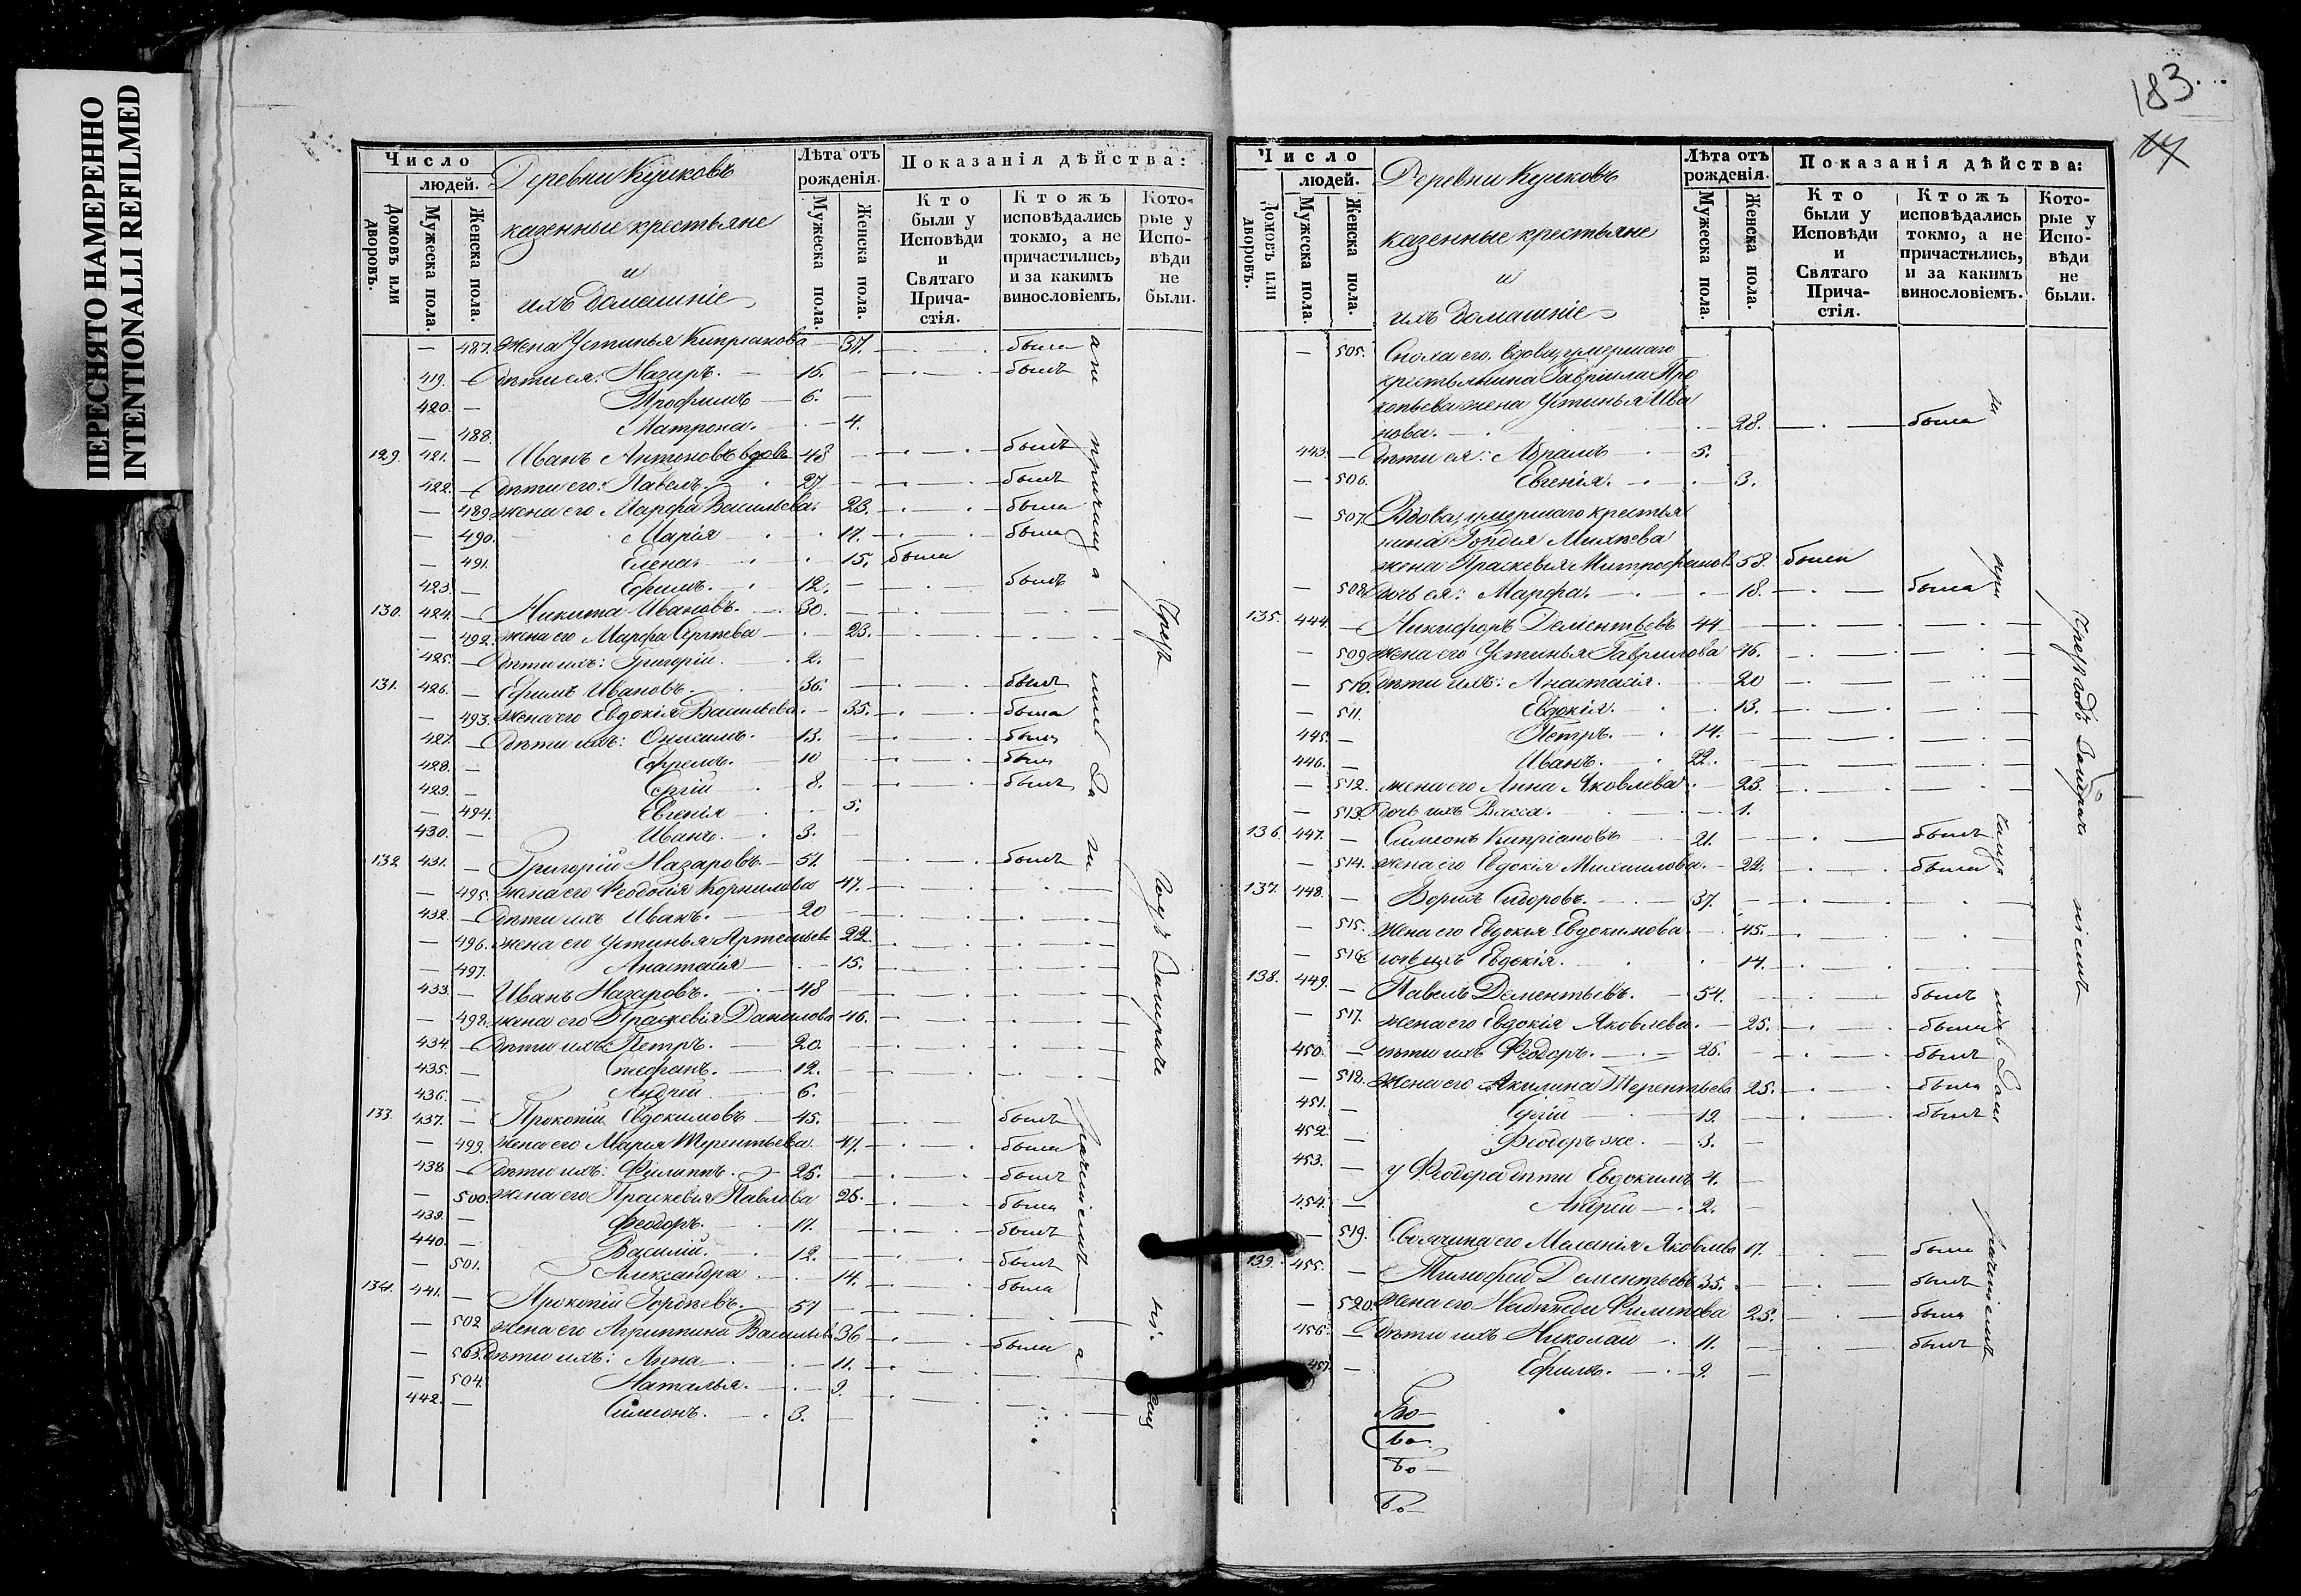 ПЕРЕСНЯТО НАМЕРЕННО
INTENTIONALLI REFILMED
Число
людей.
Домовъ или дворовъ.
Мужеска пола.
Женска пола.
Деревни
казенные крестьяне
и
ихъ домашніе
Лѣта отъ рожденія.
Мужеска пола.
Женска пола.
Показанія дѣйства:
Кто были у Исповѣди и Святаго Прича-стія.
Ктожъ исповѣдались токмо, а не причастились, и за какимъ винословіемъ.
Кото-рые у Испо-вѣди не были.
— 487. жена Устинья Кипріанова 37. была
419. — дѣти ея: Назаръ. 16. былъ
420. — Трофимъ 6. —
— 488. Матрона. 4.
129. 421. — Иванъ Антоновъ вдовъ 48 — былъ
422. — дѣти его: Павелъ. 27 — былъ
— 489 жена его Марфа Васильева. 23. была
— 490. Марія 17. была
— 491. Елена. 15. была
423. — Ефимъ. 12. — былъ
130. 424. — Никита Ивановъ. 30. —
— 492. жена его Марфа Сергѣева 23.
425. — дѣти ихъ: Григорій. 2. —
131. 426. — Ефимъ Ивановъ. 36. — былъ
— 493. жена его Евдокія Васильева. 35. была
427. — дѣти ихъ: Онисимъ. 13. — былъ
428. — Ефремъ. 10 былъ
429. — Сергій 8. былъ
— 494. Евгенія 5.
430. — Иванъ. 3. —
132. 431. — Григорій Назаровъ. 51. — былъ
— 495. жена его Феодосія Корнилова 47.
432. — дѣти ихъ Иванъ. 20
— 496. жена его Устинья 22.
— 497. Анастасія 15.
433. — Иванъ Назаровъ. 48 —
— 498. жена его Праскевія Данилова 46.
434. — дѣти ихъ: Петръ. 20. —
435. — Стефанъ. 12. —
436. — Андрей 6. —
133 437. — Прокопій Евдокимовъ 45. — былъ
— 499. жена его Марія Терентьева. 47. была
438 — дѣти ихъ: Филиппъ. 25. — былъ
— 500. жена его Праскевія Павлова 25. была
439. — Феодоръ. 17. — былъ
440. — Василій. 12. — былъ
— 501. Александра 14. была
134. 441. — Прокопій Гордѣевъ. 57 —
— 502 жена его Агриппина 36 была
— 503. дѣти ихъ: Анна 11.
— 504. Наталья. 9.
442. — Симеонъ. 3. —
183.
Число
людей.
Домовъ или дворовъ.
Мужеска пола.
Женска пола.
Деревни
казенные крестьяне
и
ихъ домашніе
Лѣта отъ рожденія.
Мужеска пола.
Женска пола.
Показанія дѣйства:
Кто были у Исповѣди и Святаго Прича-стія.
Ктожъ исповѣдались токмо, а не причастились, и за какимъ винословіемъ.
Кото-рые у Испо-вѣди не были.
— 505. Сноха его, вдова, умершаго
крестьянина Гавріила Про
копьева жена Устинья Ива
нова. 28. была
443. — дѣти ея: Абрамъ 5.
— 506. Евгенія. 3.
— 507. Вдова, умершаго крестья
нина Гордея Михѣева
жена Праскевья Митрофанов 58. была
— 508. дочь ея: Марфа. 18. была
135. 444. — Никифоръ Дементьевъ 44
— 509 жена его Устинья Гаврилова 46.
— 510. дѣти ихъ: Анастасія. 20
— 511. Евдокія. 13.
445. — Петръ. 14.
446. — Иванъ. 22.
— 512. жена его Анна Яковлева 23.
— 513. дочь ихъ Васса. 1.
136. 447. — Симеонъ Кипріановъ 21. былъ
— 514. жена его Евдокія Михаилова. 22. была
137. 448. — Борисъ Сидоровъ. 37.
— 515. жена его Евдокія Евдокимова 45.
— 516. дочь ихъ Евдокія. 14.
138. 449. — Павелъ Дементьевъ. 54. былъ
— 517. жена его Евдокія Яковлева. 25. была
450. — дѣти ихъ Феодоръ. 25. былъ
— 518. жена его Акилина Терентьева 25. была
451. — Сергій 19. былъ
452. — Феодоръ же. 3. —
453. — у Феодора дѣти Евдокимъ 4. —
454. — Андрей 2. —
— 519. Своячина его Меланія Яковлева 17. была
139. 455. — Тимофей Дементьевъ 35. былъ
— 520. жена его Надежда Филипова 25. была
456. — дѣти ихъ Николай 11. былъ
457. — Ефимъ. 9. —